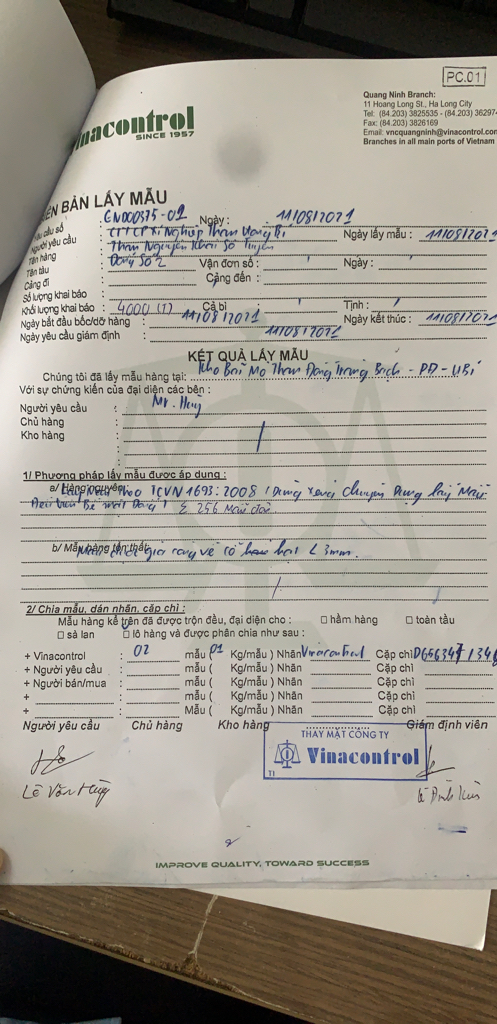 PC.01
Vinacontrol
SINCE 1957
Quang Ninh Branch:
11 Hoang Long St., Ha Long City
Tel: (84.203) 3825535 - (84.203) 36297
Fax: (84.203) 3826169
Email: vncquangninh@vinacontrol.com
Branches in all main ports of Vietnam
BẢN LẤY MẪU
cầu số GN000375-01 Ngày : 11/08/2021
Người yêu cầu : Xí Nghiệp Than Uông Bí Ngày lấy mẫu : 11/08/2021
Tên hàng : Than Nguyên Khai
Tên tàu : Đống Số 2 Vận đơn số : Ngày :
Cảng đi Cảng đến :
Số lượng khai báo
Khối lượng khai báo : 4000 (T) Cả bì : Tịnh :
Ngày bắt đầu bốc/dỡ hàng : 11/08/2021 Ngày kết thúc : 11/08/2021
Ngày yêu cầu giám định : 11/08/2021
KẾT QUẢ LẤY MẪU
Chúng tôi đã lấy mẫu hàng tại: Kho Bãi Mỏ Than Đồng Tràng Bạch - PĐ - UBí
Với sự chứng kiến của đại diện các bên :
Người yêu cầu : Mr. Hùng
Chủ hàng :
Kho hàng :
1/ Phương pháp lấy mẫu được áp dụng :
a/ Hàng nguyên: TCVN 1693:2008 (Dùng xẻng chuyên dụng lấy Mẫu
Đều trên Bề mặt Đống) Σ 256 Mẫu đơn
b/ Mẫu hàng tổn thất: gia công về cỡ hạt < 3mm.
2/ Chia mẫu, dán nhãn, cặp chì :
Mẫu hàng kể trên đã được trộn đều, đại diện cho : □ hầm hàng □ toàn tầu
□ sà lan □ lô hàng và được phân chia như sau :
+ Vinacontrol : 02 mẫu ( 01 Kg/mẫu ) Nhãn Vinacontrol Cặp chì
+ Người yêu cầu : mẫu ( Kg/mẫu ) Nhãn Cặp chì
+ Người bán/mua : mẫu ( Kg/mẫu ) Nhãn Cặp chì
+ : mẫu ( Kg/mẫu ) Nhãn Cặp chì
+ : Mẫu ( Kg/mẫu ) Nhãn Cặp chì
Người yêu cầu Chủ hàng Kho hàng Giám định viên
THAY MẶT CÔNG TY
Vinacontrol
T1
Lê Văn Hùng
IMPROVE QUALITY, TOWARD SUCCESS